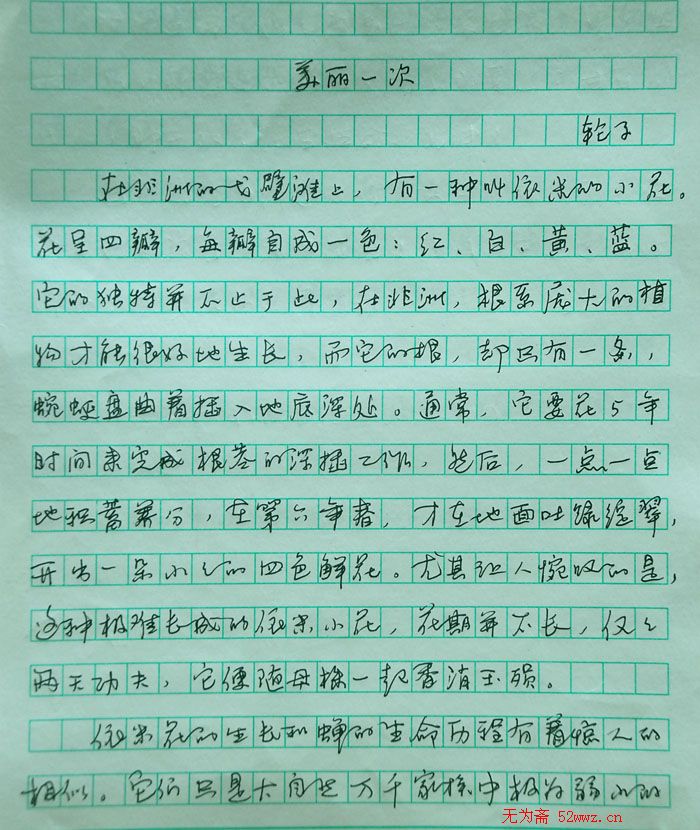 美丽一次
轮子
在非洲的戈壁滩上，有一种叫依米的小花。
花呈四瓣，每瓣自成一色：红、白、黄、蓝。
它的独特并不止于此，在非洲，根系庞大的植
物才能很好地生长，而它的根，却只有一条，
蜿蜒盘曲着插入地底深处。通常，它要花5年
时间来完成根茎的深插工作，然后，一点一点
地积蓄养分，在第六年春，才在地面吐绿绽翠，
开出一朵小小的四色鲜花。尤其让人惋叹的是，
这种极难长成的依米小花，花期并不长，仅仅
两天功夫，它便随母株一起香消玉殒。
依米花的生长和蝉的生命历程有着惊人的
相似。它们只是大自然万千家族中极为弱小的
无为斋 52wwz.cn